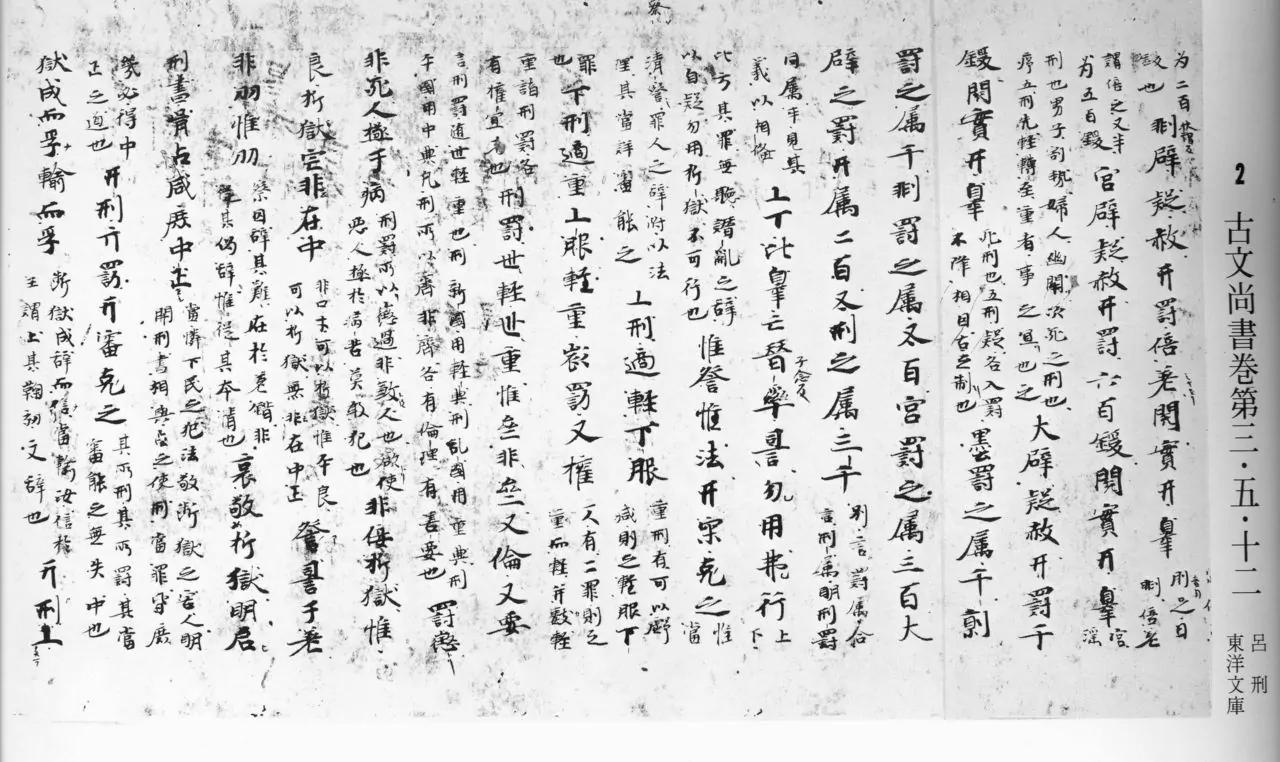 2 古文尚書卷第三・五・十二
呂刑
東洋文庫
為二百
鍰也
剕辟疑赦亓罰倍差閱實亓辠
刖足曰
剕倍差
謂倍之又半
為五百鍰
宮辟疑赦亓罰六百鍰閱實亓辠
宮
淫
刑也男子割勢婦人幽閉次死之刑也
序五刑先輕轉至重者事之宜也
大辟疑赦亓罰千
鍰閱實亓辠
死刑也五刑疑各入罰
不降相因古之制也
墨罰之属千劓
罰之属千剕罰之属五百宮罰之属三百大
辟之罰亓属二百五刑之属三千
別言罰属合
言刑属明刑罰
同属互見其
義以相
上下比辠亡僭勿用弗行
上
下
比方其罪無聽僭亂之辭
以自疑勿用折獄不可行也
惟詧惟法亓審克之
惟
當
清詧罪人之辭附以法
理其當詳審能之
上刑適輕下服
重刑有可以虧
減則之輕服下
罪
也
下刑適重上服輕重罰又權
一人有二罪則之
重而輕并數輕
重諸刑罰各
有權宜也
刑罰世輕世重惟齊非齊又倫又要
言刑罰隨世輕重也刑新國用輕典刑亂國用重典刑
平國用中典凡刑所以齊非齊各有倫理有善要也
罰懲
非死人極于病
刑罰所以懲過非敎人也欲使
惡人極於病苦莫敢犯也
非佞折獄惟
良折獄宅非在中
非口才可以斷獄惟平良
可以折獄無非在中正
詧于差
非刕惟刕
察囚辭其難在於差錯非
從其偽辭惟從其本情也
哀敬折獄明启
刑書胥占咸庶中正
當憐下民之犯法敬斷獄之害人明
開刑書相與占之使刑當罪皆庶
幾必得中
正之道也
亓刑亓罰亓審克之
其所刑其所罰其當
審能之無失中也
獄成而孚輸而孚
斷獄成辭而信當輸汝信於
王謂上其鞠劾文辭也
亓刑上